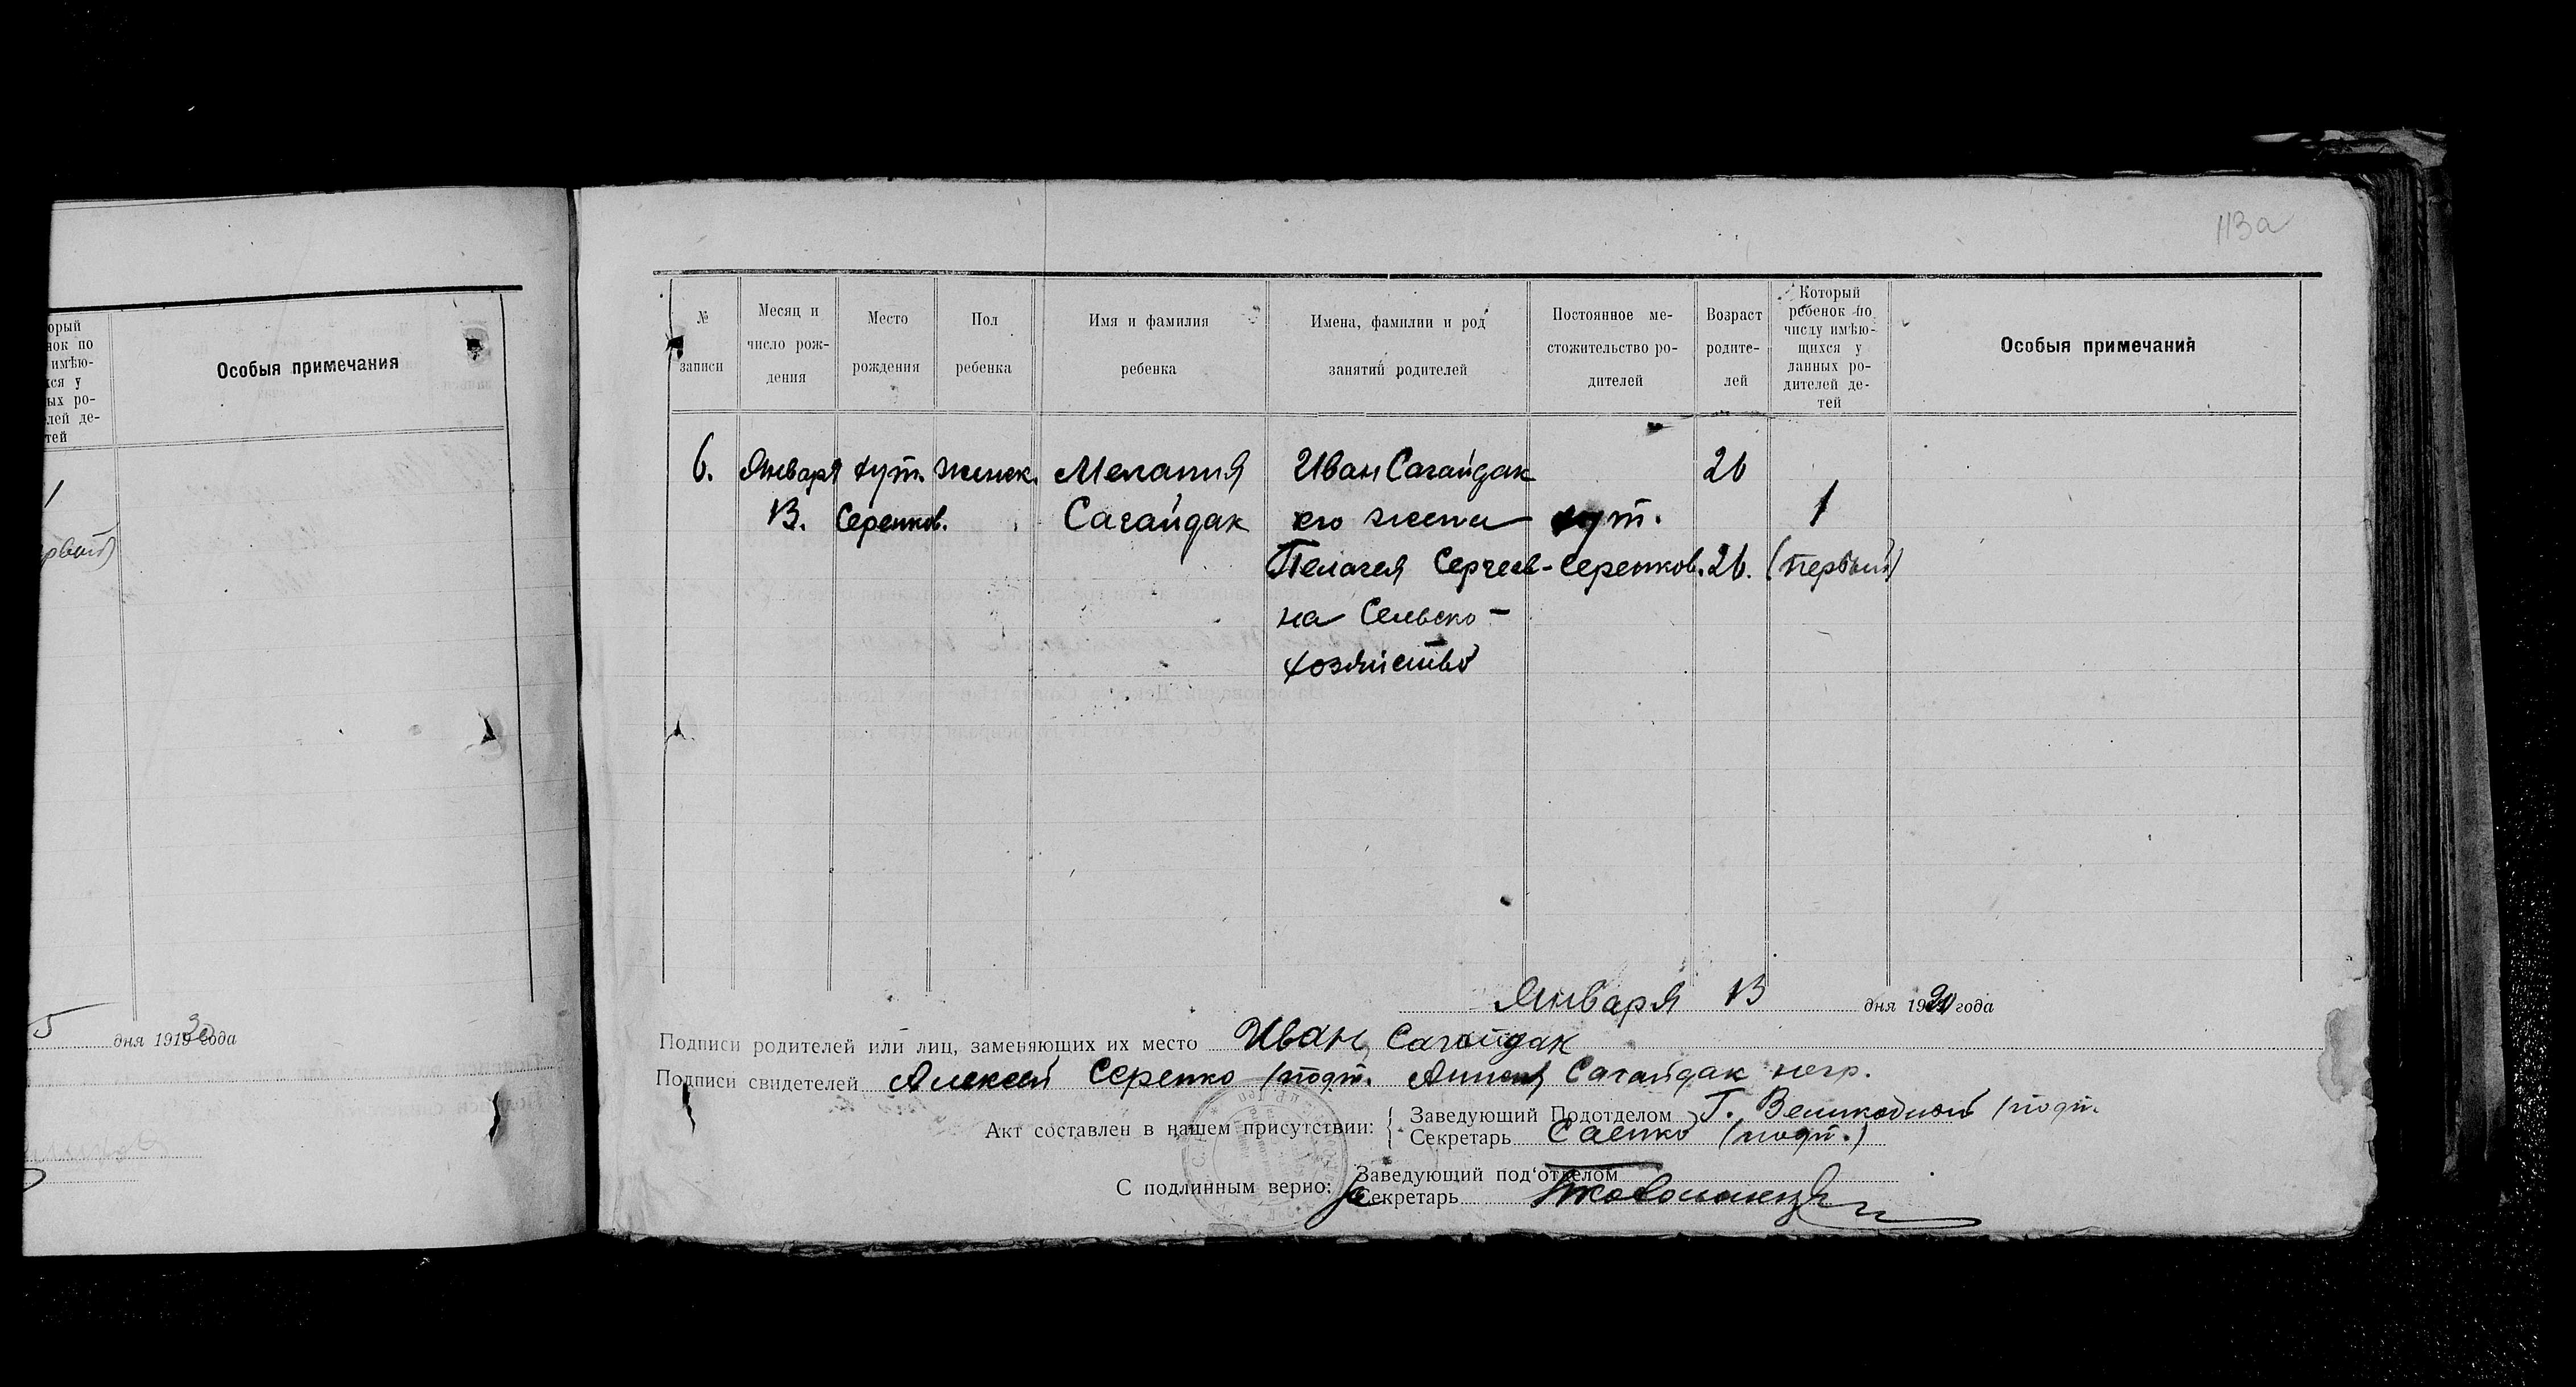 113а
орый
нок по
имѣю-
хся у
ых ро-
лей де-
тей
Особыя примечания
1
рвый)
5 дня 1919 20 года
№
записи
Месяц и
число рож-
дения
Место
рождения
Пол
ребенка
Имя и фамилия
ребенка
Имена, фамилии и род
занятий родителей
Постоянное ме-
стожительство ро-
дителей
Возраст
родите-
лей
Который
ребенок по
числу имѣю-
щихся у
данных ро-
дителей де-
тей
Особыя примечания
6. Января хут. женск. Мелания Иван Сагайдак 26
13. Серенков. Сагайдак его жена хут. 1
Пелагея Сергеев- Серенков. 26. (первый)
на Сельско-
хозяйство
Января 13 дня 1920 года
Подписи родителей или лиц, заменяющих их место Иван Сагайдак
Подписи свидетелей Алексей Серенко (подп. Сагайдак негр.
Акт составлен в нашем присутствии:
Заведующий Подотделом Г. Великодный (подп.
Секретарь Саенко (подп.)
С подлинным верно:
Заведующий под'отделом
Секретарь